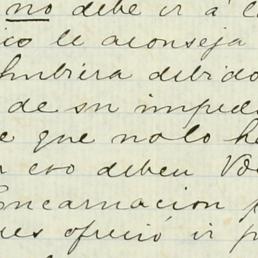 no debe ir á l
le aconseja
hubiera debido
de su imped
e que no lo h
eso deben Vd
Encarnacion
es ofreció ir p